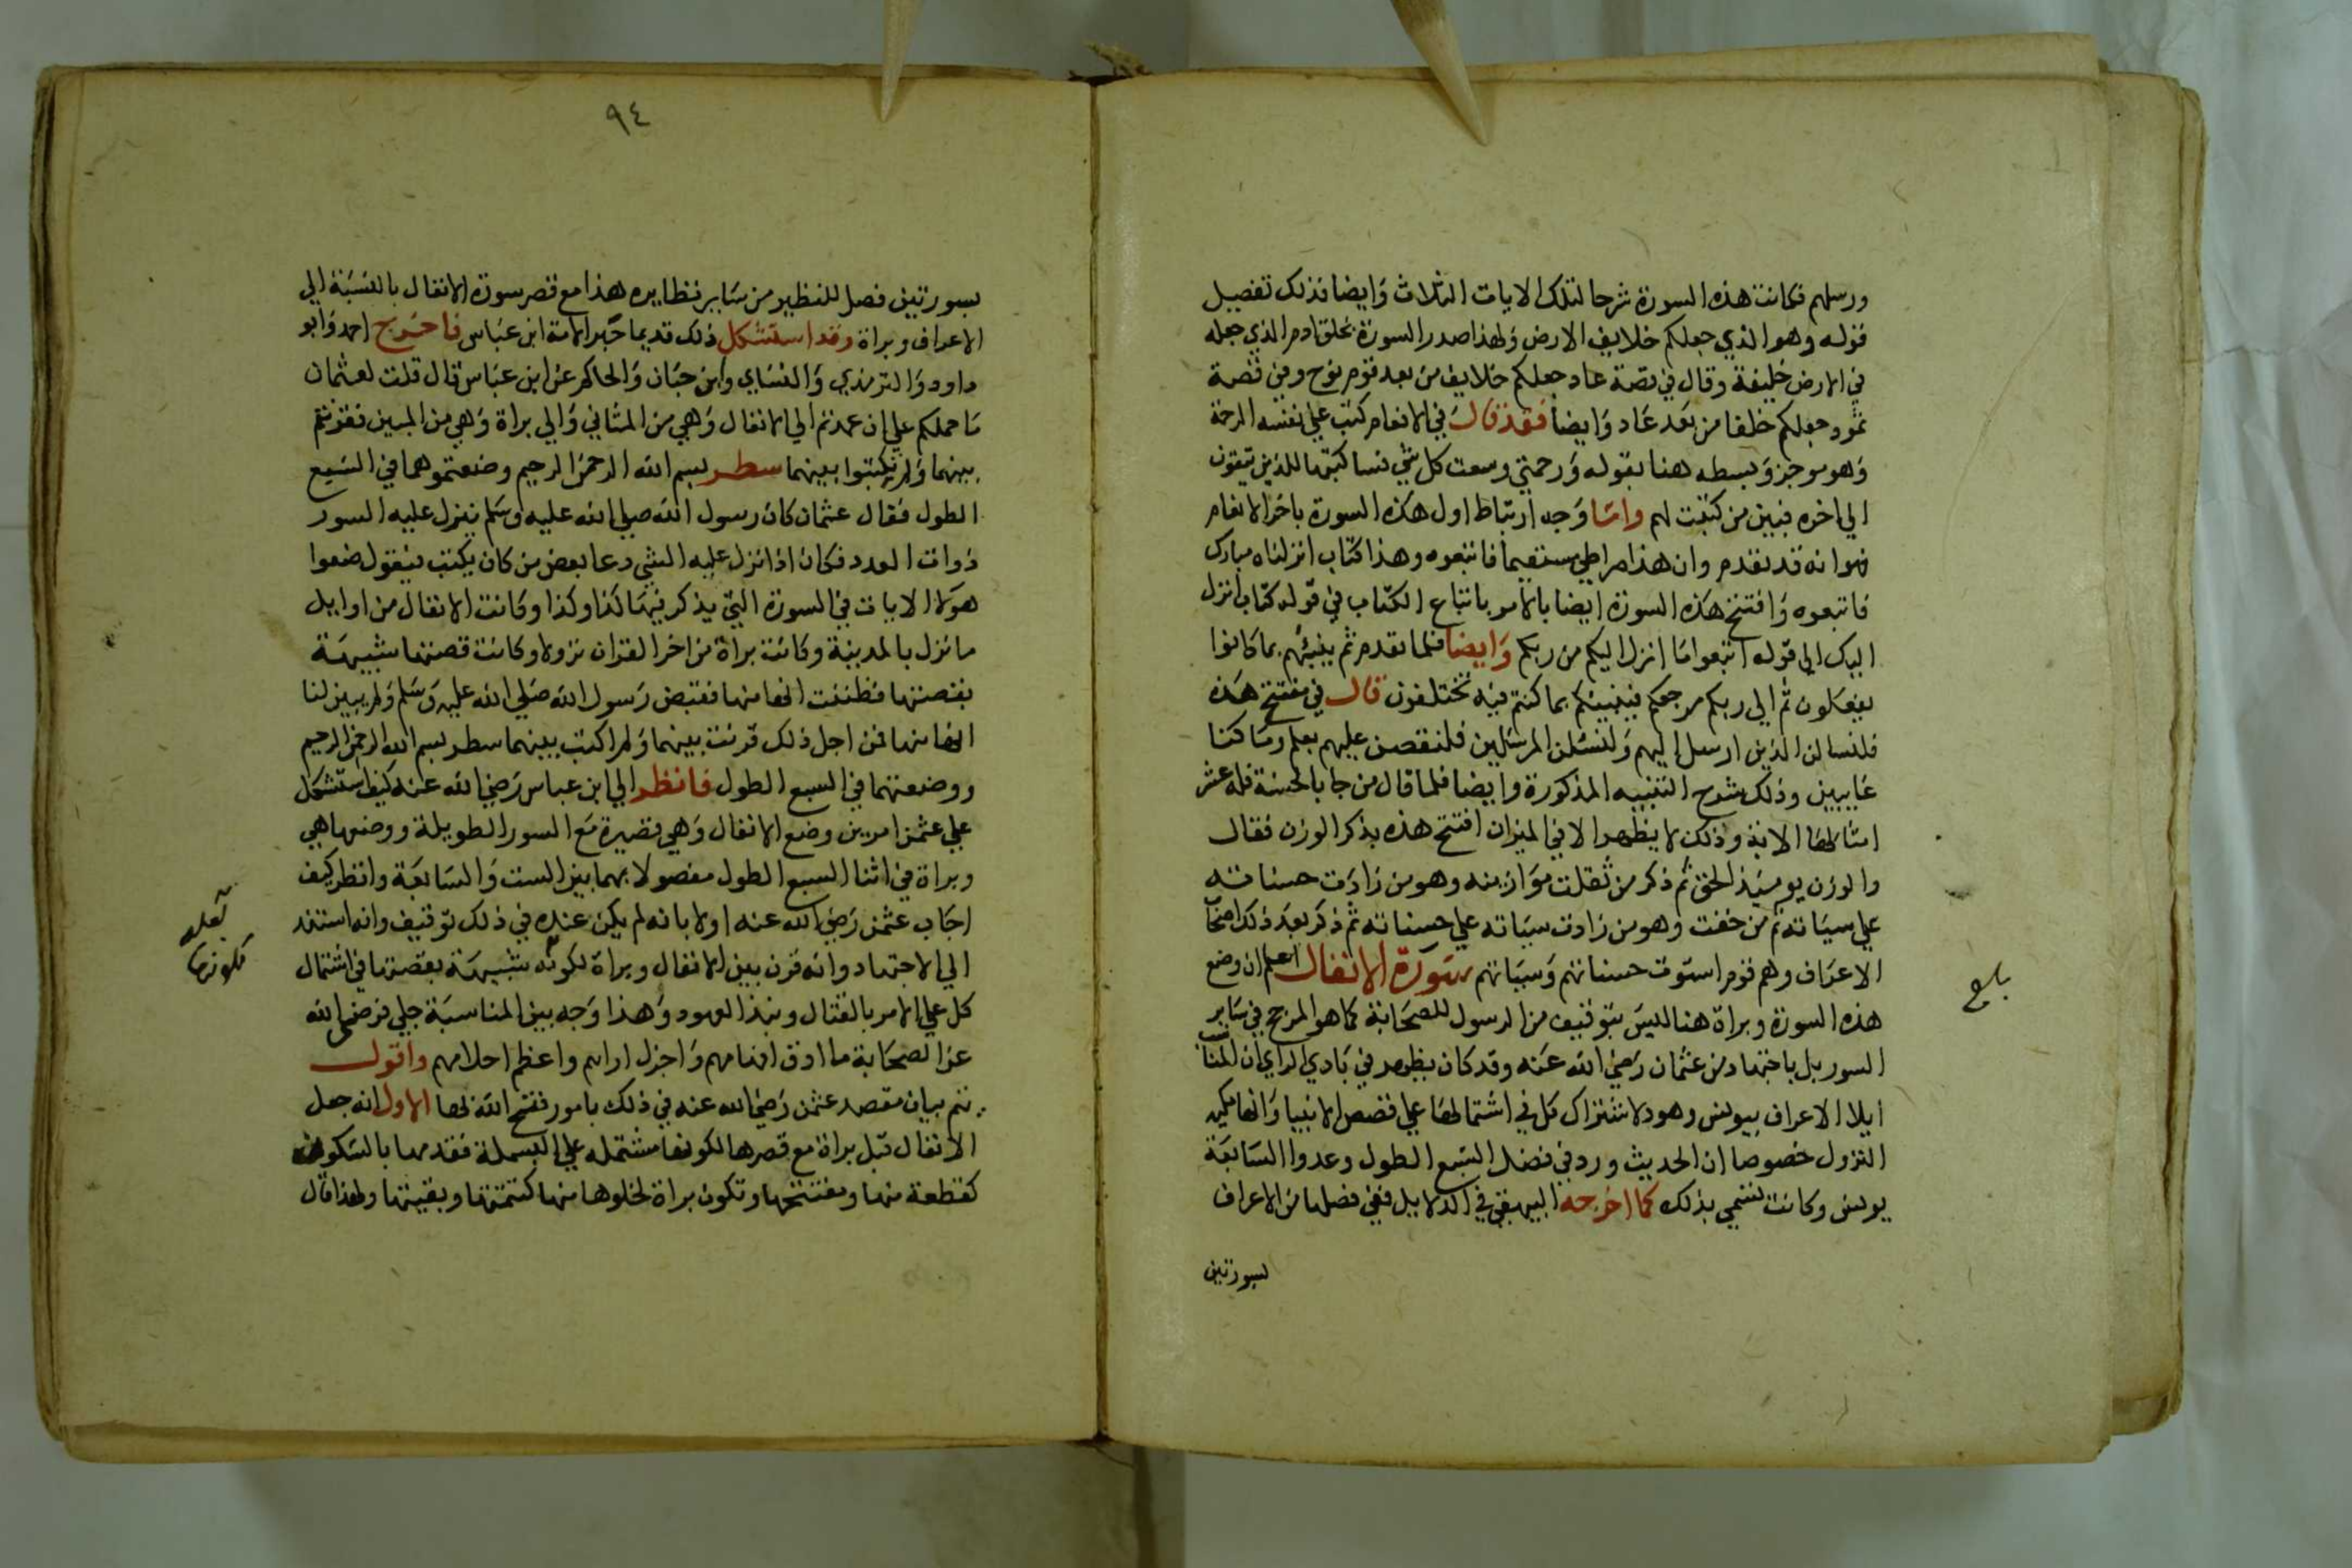 ورسلهم فكانت هذه السورة شرحا لتلك الايات الثلاث وايضا فذلك تفصيل
قوله وهو الذي جعلكم خلايف الارض ولهذا صدر السورة بخلق ادم الذي جعله
في الارض خليفة وقال في قصة عاد جعلكم خلايف من بعد قوم نوح وفي قصة
ثمود جعلكم خلفا من بعد عاد وايضا فقد قال في الانعام كتب علي نفسه الرحمة
وهو موجز وبسطه هنا بقوله ورحمتي وسعت كل شي فساكتبها للذين يتقون
الي اخره فبين من كتبت لهم واما وجه ارتباط اول هذه السورة باخر الانعام
فهو انه قد تقدم وان هذا صراطي مستقيما فاتبعوه وهذا كتاب انزلناه مبارك
فاتبعوه وافتتح هذه السورة ايضا بالامر باتباع الكتاب في قوله كتاب انزل
اليك الي قوله اتبعوا ما انزل اليكم من ربكم وايضا فلما تقدم ثم ينبئهم بما كانوا
يفعلون ثم الي ربكم مرجعكم فينبيكم بما كنتم فيه تختلفون قال في مفتتح هذه
فلنسالن الذين ارسل اليهم ولنسئلن المرسلين فلنقصن عليهم بعلم وما كنا
غايبين وذلك شرح التنبيه المذكورة وايضا فلما قال من جا بالحسنة فله عشر
امثالها الاية وذلك لا يظهر الا في الميزان افتتح هذه بذكر الوزن فقال
والوزن يوميذ الحق ثم ذكر من ثقلت موازينه وهو من زادت حسناته
علي سياته ثم من خفت وهو من زادت سياته علي حسناته ثم ذكر بعد ذلك اصحاب
الاعراف وهم قوم استوت حسناتهم وسياتهم سورة الانفال اعلم ان وضع
هذه السورة وبراة هنا ليس بتوقيف من الرسول للصحابة كما هو المرجح في ساير
السور بل باجتهاد من عثمان رضي الله عنه وقد كان يظهر في بادي الراي ان المناسب
ايلا الاعراف بيونس وهود لاشتراك كل في اشتمالها علي قصص الانبيا وانها مكية
النزول خصوصا ان الحديث ورد في فضل السبع الطول وعدوا السابعة
يونس وكانت تسمي بذلك كما اخرجه البيهقي في الدلايل ففي فصلها من الاعراف
بسورتين
بلغ
٩٤
بسورتين فصل للنظير من ساير نظايره هذا مع قصر سورة الانفال بالنسبة الي
الاعراف وبراة وقد استشكل ذلك قديما حبر الامة ابن عباس فاخرج احمد وابو
داود والترمذي والنساي وابن حبان والحاكم عن ابن عباس قال قلت لعثمان
ما حملكم علي ان عمدتم الي الانفال وهي من المثاني والي براة وهي من المبين فقرنتم
بينهما ولم تكتبوا بينهما سطر بسم الله الرحمن الرحيم وضعتموهما في السبع
الطول فقال عثمان كان رسول الله صلي الله عليه وسلم ينزل عليه السور
ذوات العدد فكان اذا نزل عليه الشي دعا بعض من كان يكتب فيقول ضعوا
هولا الايات في السورة التي يذكر فيها كذا وكذا وكانت الانفال من اوايل
ما نزل بالمدينة وكانت براة من اخر القران نزولا وكانت قصتها شبيهة
بقصتها فظننت انها منها فقبض رسول الله صلي الله عليه وسلم ولم يبين لنا
انها منها فمن اجل ذلك قرنت بينهما ولم اكتب بينهما سطر بسم الله الرحمن الرحيم
ووضعتهما في السبع الطول فانظر الي ابن عباس رضي الله عنه كيف استشكل
علي عثمن امرين وضع الانفال وهي قصيرة مع السور الطويلة ووضعها هي
وبراة في اثنا السبع الطول مفصولا بهما بين الست والسابعة وانظر كيف
اجاب عثمن رضي الله عنه اولا بانه لم يكن عنده في ذلك توقيف وانه استند
الي الاجتهاد وانه قرن بين الانفال وبراة لكونه شبيهة بقصتها في اشتمال
كل علي الامر بالقتال ونبذ العهود وهذا وجه بين المناسبة جلي فرضي الله
عن الصحابة ما ادق افهامهم واجزل اراهم واعظم احلامهم واقول
يتم بيان مقصد عثمن رضي الله عنه في ذلك بامور فتح الله لها الاول انه جعل
الانفال قبل براة مع قصرها لكونها مشتملة علي البسملة فقدمها بالسكون
كقطعة منها ومفتتحها وتكون براة لخلوها منها كتتمتها وبقيتها ولهذا قال